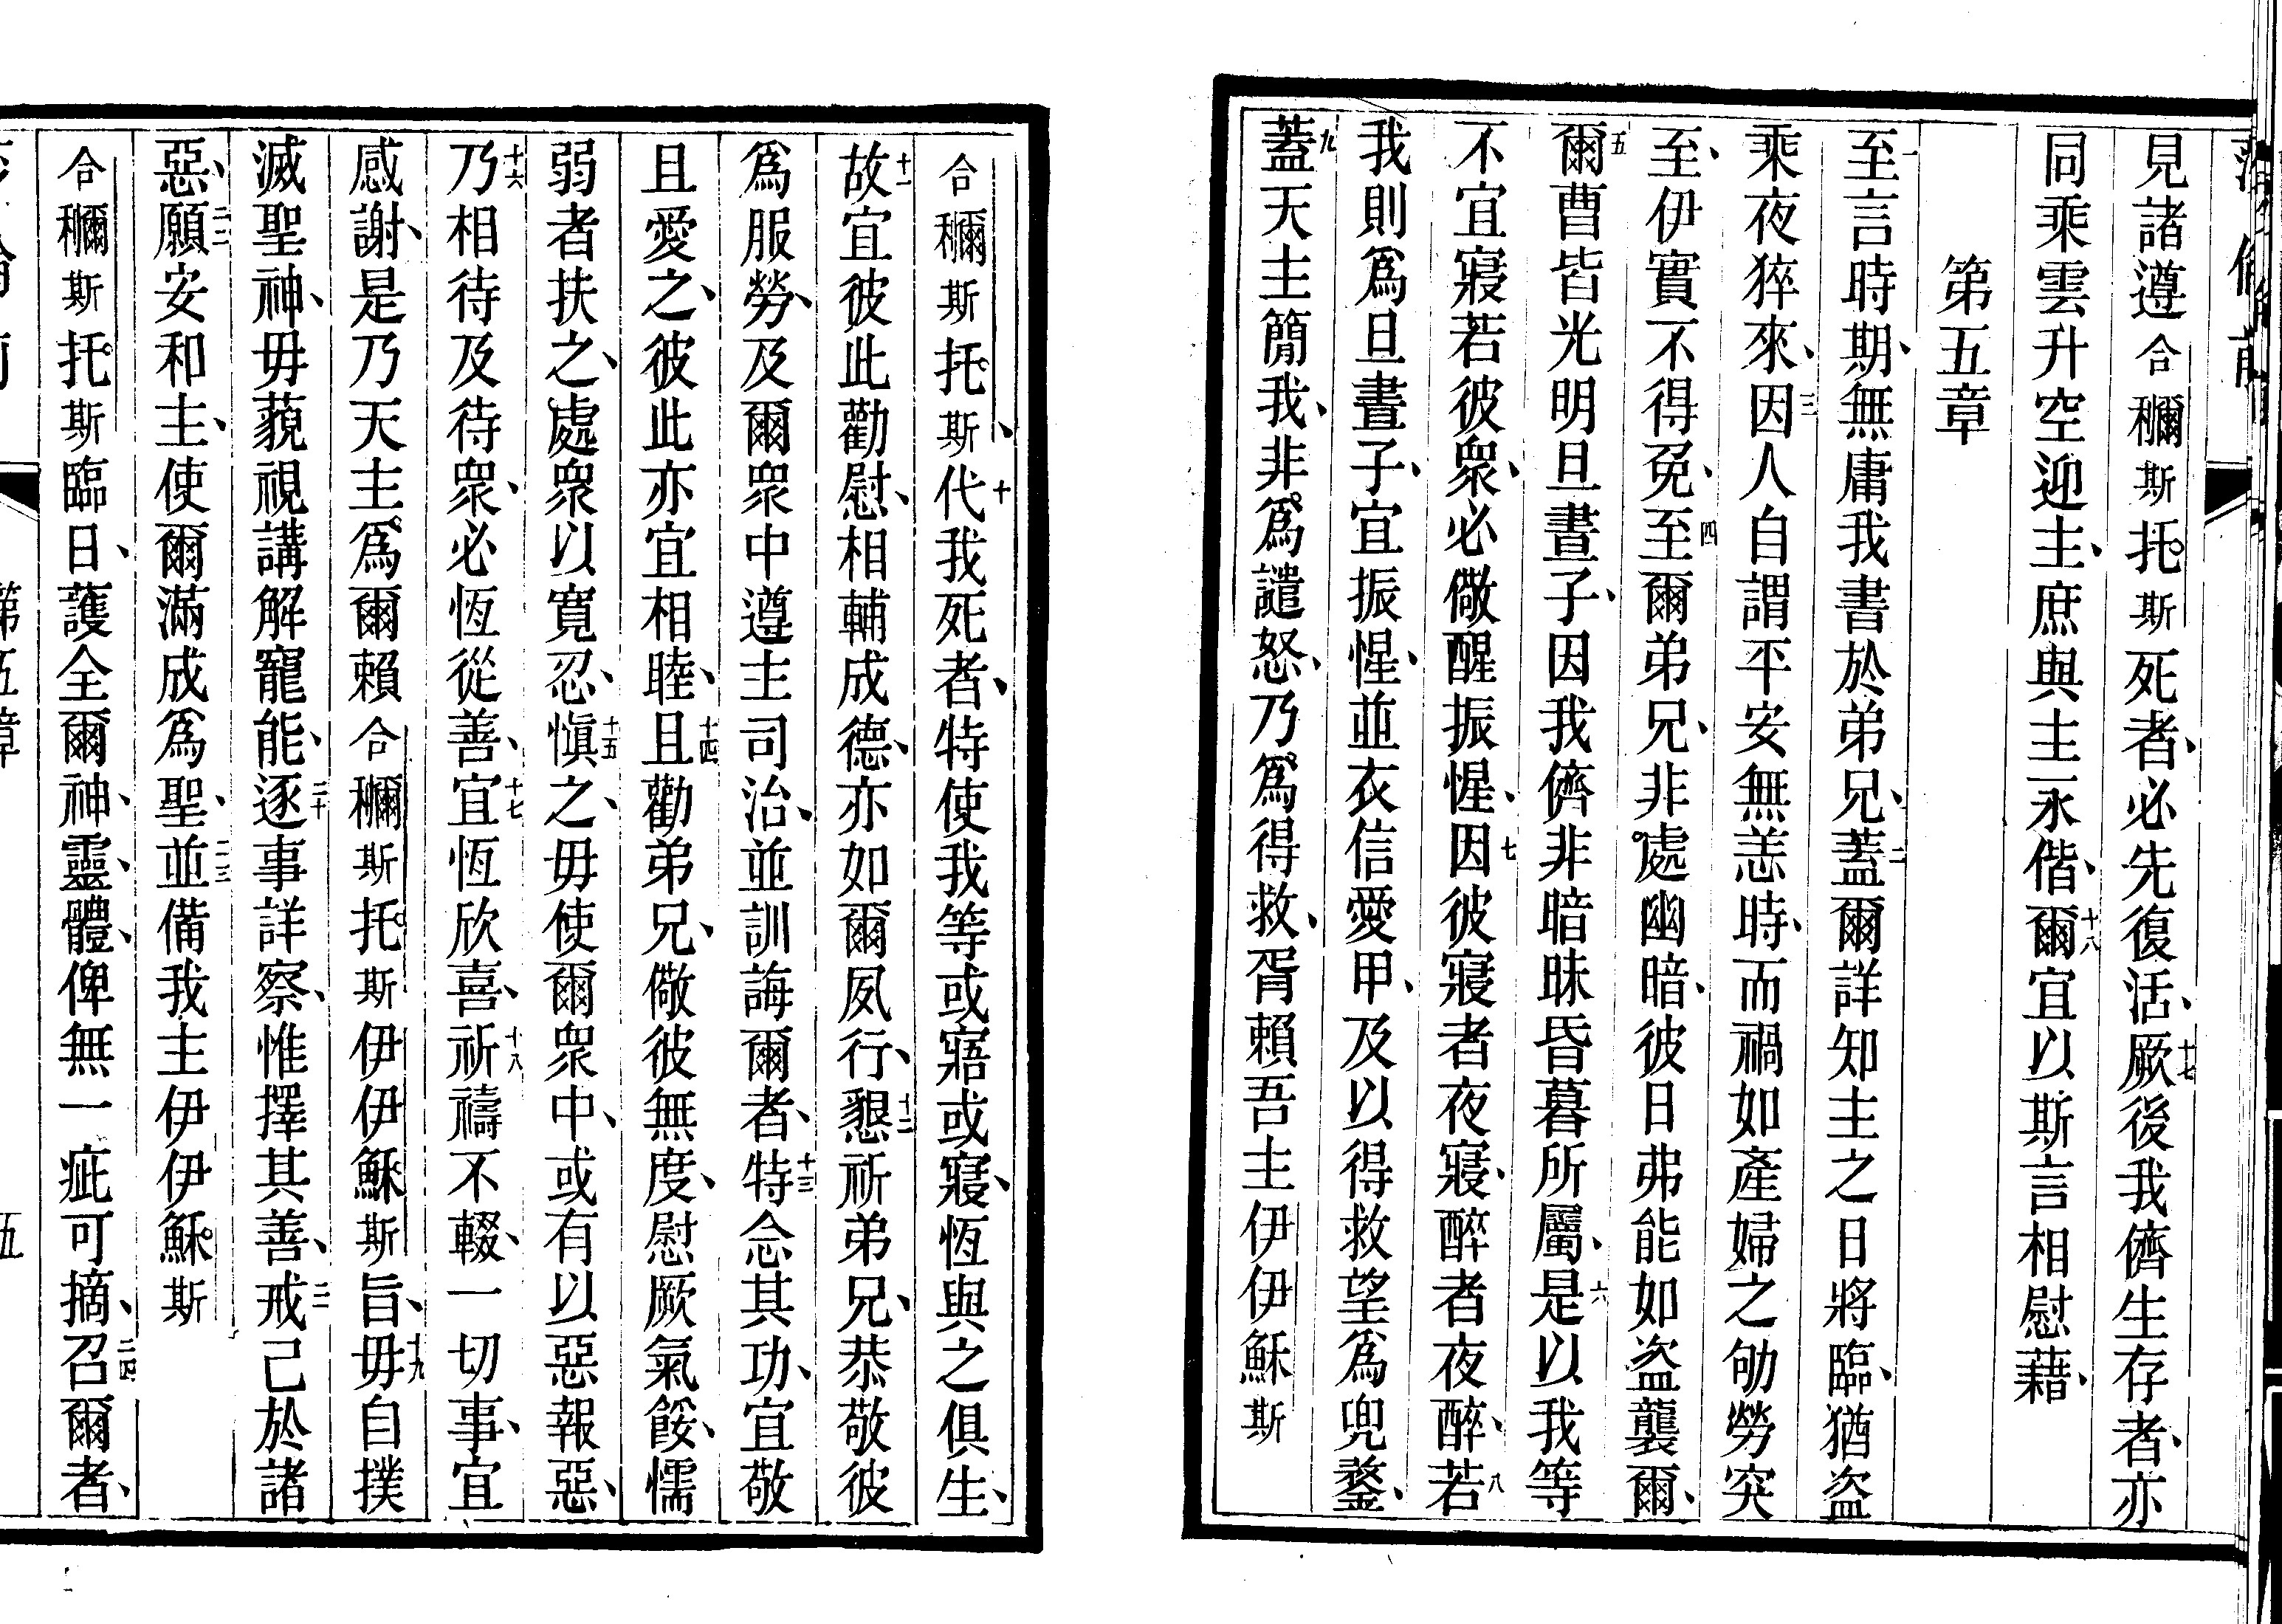 見諸遵合穪斯托斯死者、必先復活、十七厥後我儕生存者、亦
同乘雲升空迎主、庶與主永偕、十八爾宜以斯言相慰藉、
第五章
一至言時期、無庸我書於弟兄、二蓋爾詳知主之日將臨、猶盜
乘夜猝來、三因人自謂平安無恙時、而禍如產婦之劬勞突
至、伊實不得免、四至爾弟兄、非處幽暗、彼日弗能如盜襲爾、
五爾曹皆光明旦晝子、因我儕非暗昧昏暮所屬、六是以我等
不宜寢若彼衆、必儆醒振惺、七因彼寢者夜寢、醉者夜醉、八若
我則爲旦晝子、宜振惺、並衣信愛甲、及以得救望爲兜鍪、
九蓋天主簡我、非爲譴怒、乃爲得救、胥賴吾主伊伊穌斯
合穪斯托斯、十代我死者、特使我等或寤或寢、恆與之俱生、
十一故宜彼此勸慰、相輔成德、亦如爾夙行、十二懇祈弟兄、恭敬彼
爲服勞、及爾衆中遵主司治、並訓誨爾者、十三特念其功、宜敬
且愛之、彼此亦宜相睦、十四且勸弟兄、儆彼無度、慰厥氣餒、懦
弱者扶之、處衆以寬忍、十五愼之、毋使爾衆中、或有以惡報惡、
十六乃相待及待衆、必恆從善、十七宜恆欣喜、十八祈禱不輟、一切事、宜
感謝、是乃天主爲爾賴合穪斯托斯伊伊穌斯旨、十九毋自撲
滅聖神、毋藐視講解寵能、二十逐事詳察、惟擇其善、二一戒己於諸
惡、二二願安和主、使爾滿成爲聖、二三並備我主伊伊穌斯
合穪斯托斯臨日、護全爾神、靈、體、俾無一疵可摘、二四召爾者、
第五章
五